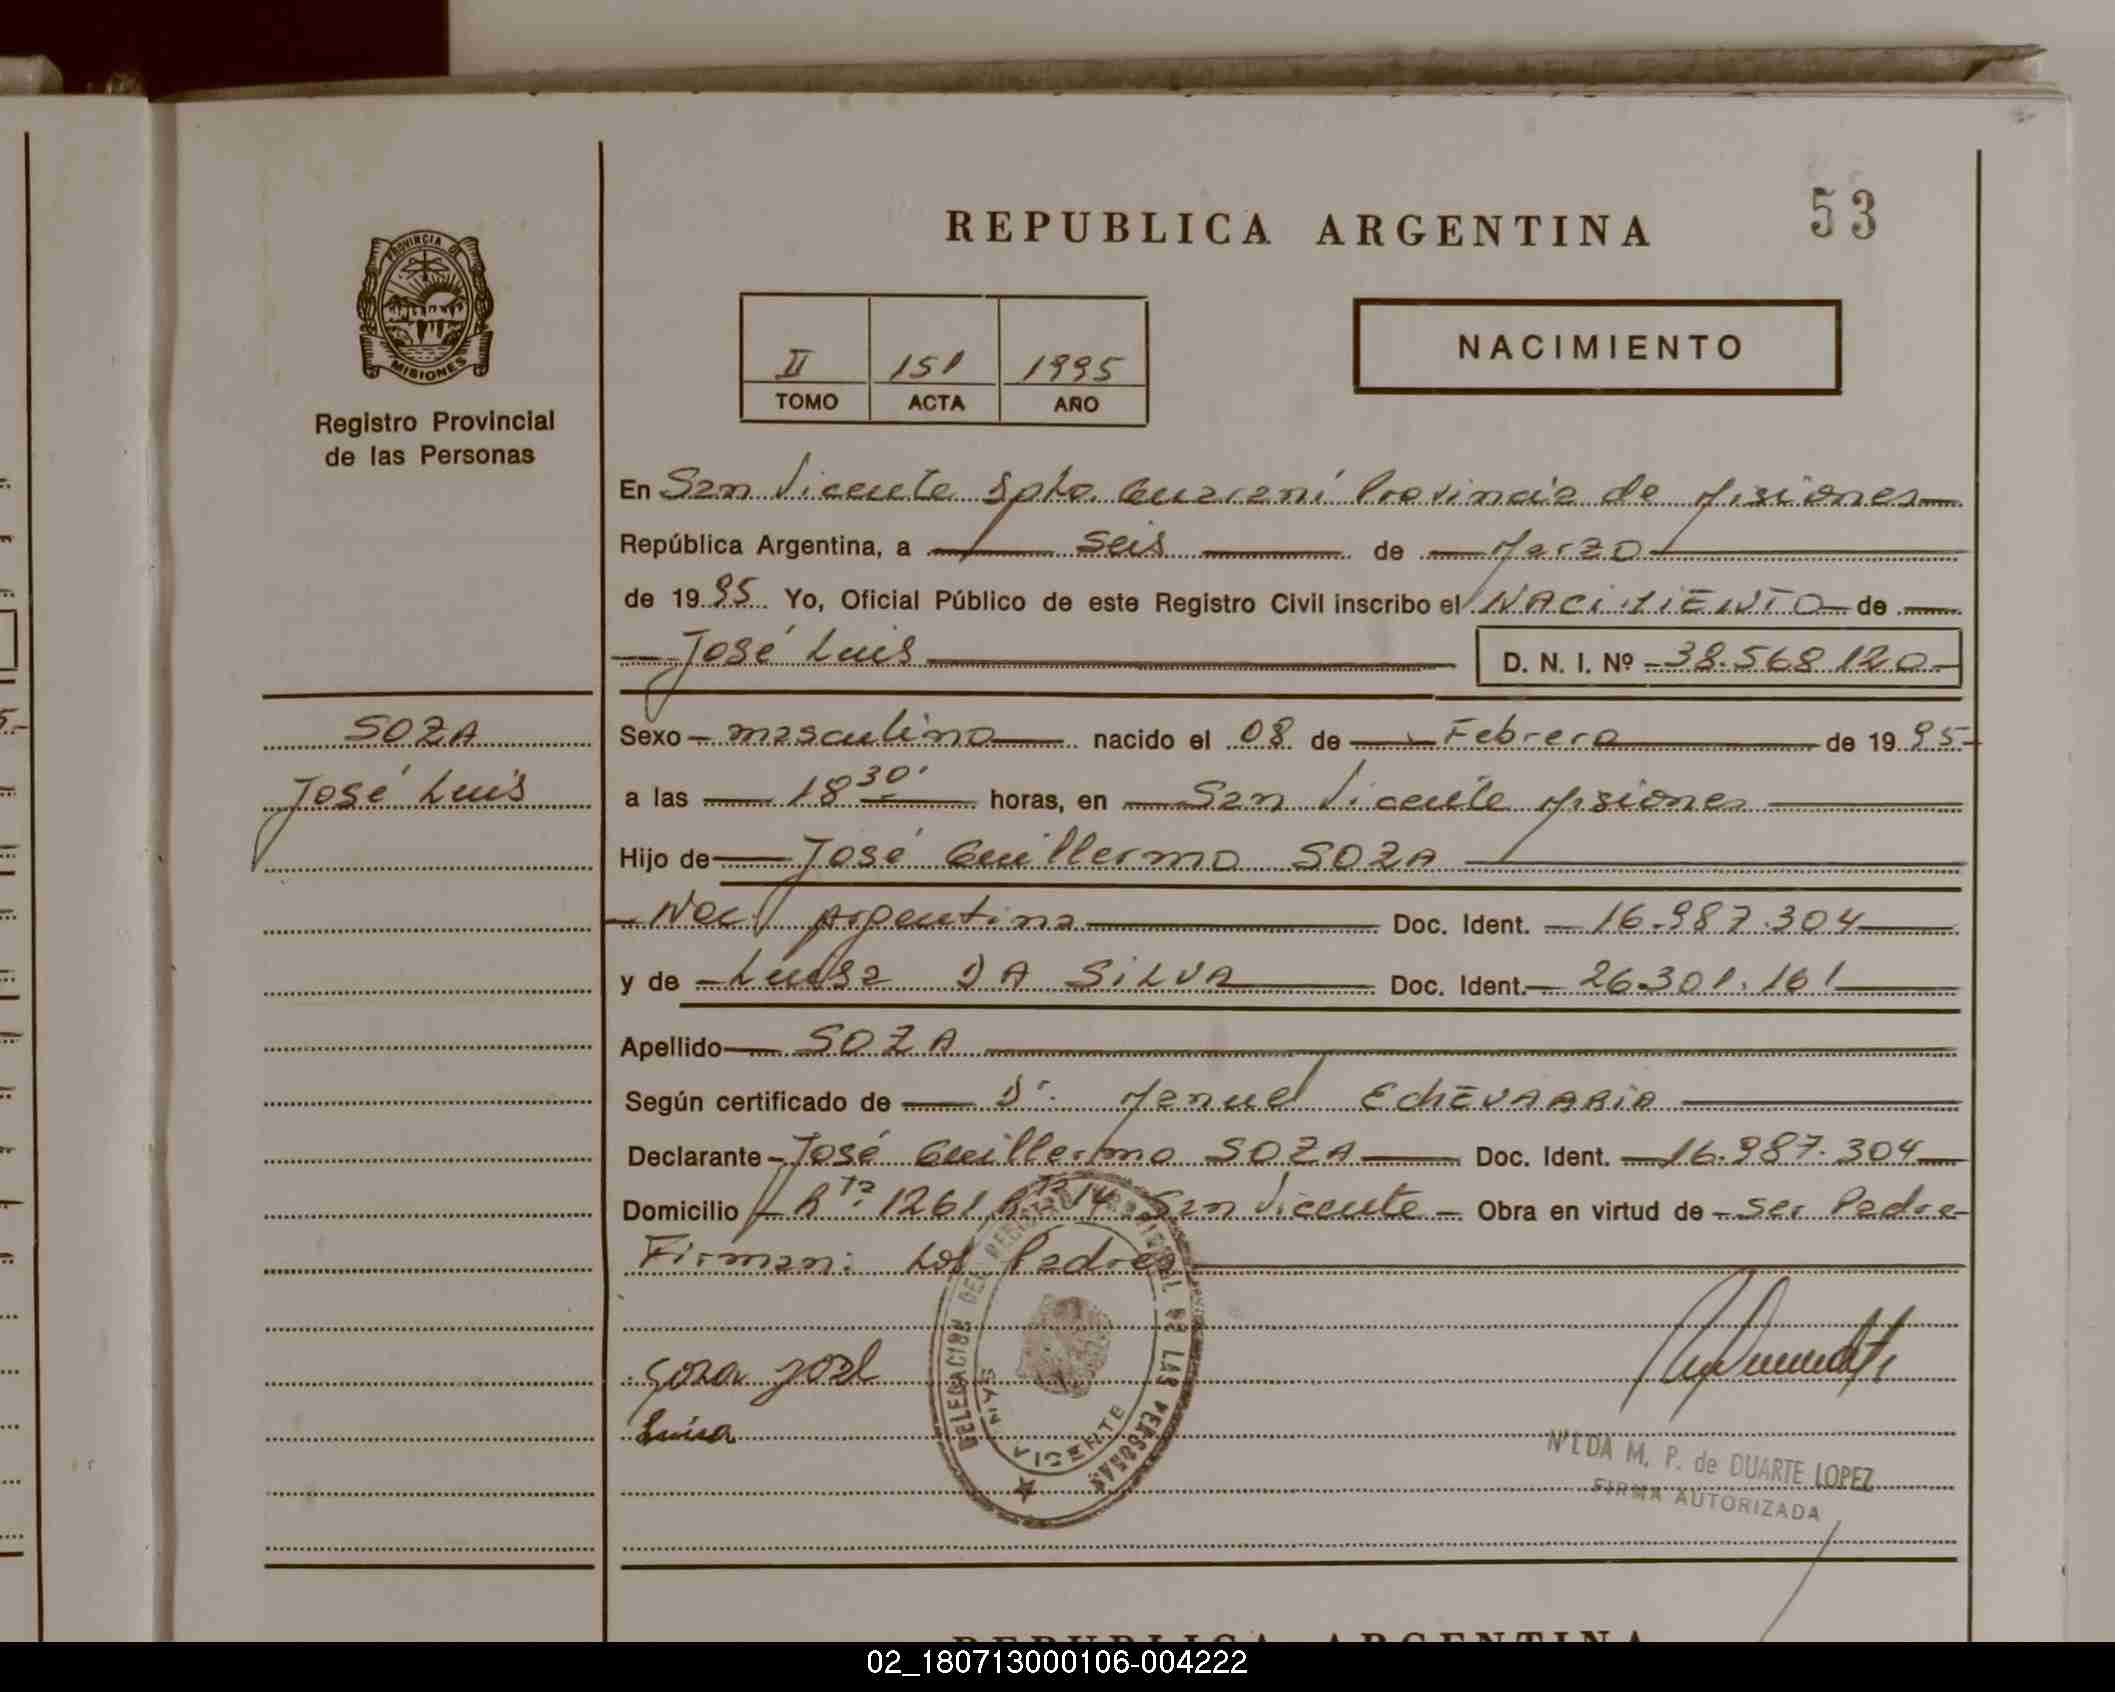 REPUBLICA ARGENTINA
53
PROVINCIA DE
MISIONES
Registro Provincial
de las Personas
II 151 1995
TOMO ACTA AÑO
NACIMIENTO
En San Vicente Dpto. Guaraní Provincia de Misiones
República Argentina, a seis de Marzo
de 1995 Yo, Oficial Público de este Registro Civil inscribo el NACIMIENTO de
José Luis D. N. I. Nº 38.568.120
SOZA
José Luis
Sexo masculino nacido el 08 de Febrero de 1995
a las 18 30' horas, en San Vicente Misiones
Hijo de José Guillermo SOZA
Nac. Argentina Doc. Ident. 16.987.304
y de Luisa DA SILVA Doc. Ident. 26.301.161
Apellido SOZA
Según certificado de Dr. Manuel ECHEVARRIA
Declarante José Guillermo SOZA Doc. Ident. 16.987.304
Domicilio Rta. 1261 Rta 14 San Vicente Obra en virtud de ser Padre
Firman: Los Padres
DELEGACION DEL REGISTRO PROVINCIAL DE LAS PERSONAS
SAN VICENTE
Soza José
Luisa
NILDA M. P. de DUARTE LOPEZ
FIRMA AUTORIZADA
REPUBLICA ARGENTINA
02_180713000106-004222